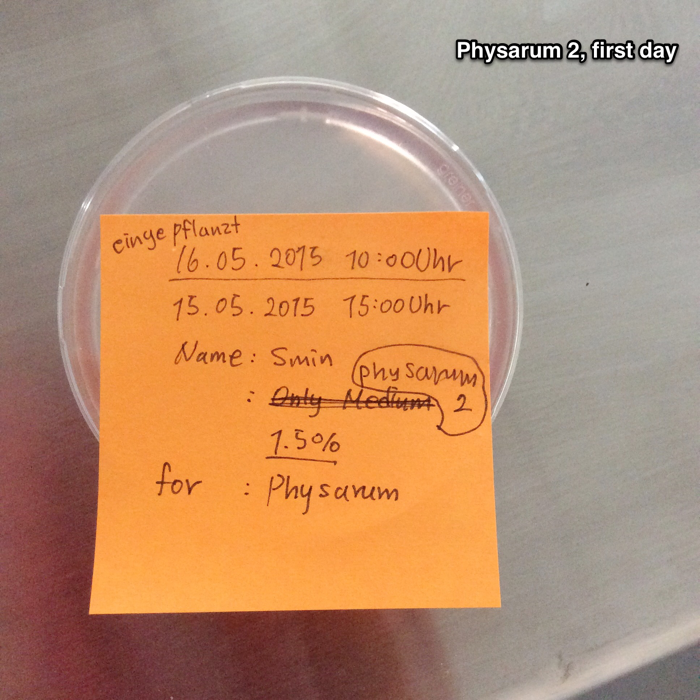 Physarum 2, first day
eingepflanzt
16.05.2015 10:00Uhr
15.05.2015 15:00Uhr
Name: Smin
physarum
: Only Medium 2
1.5%
for : Physarum